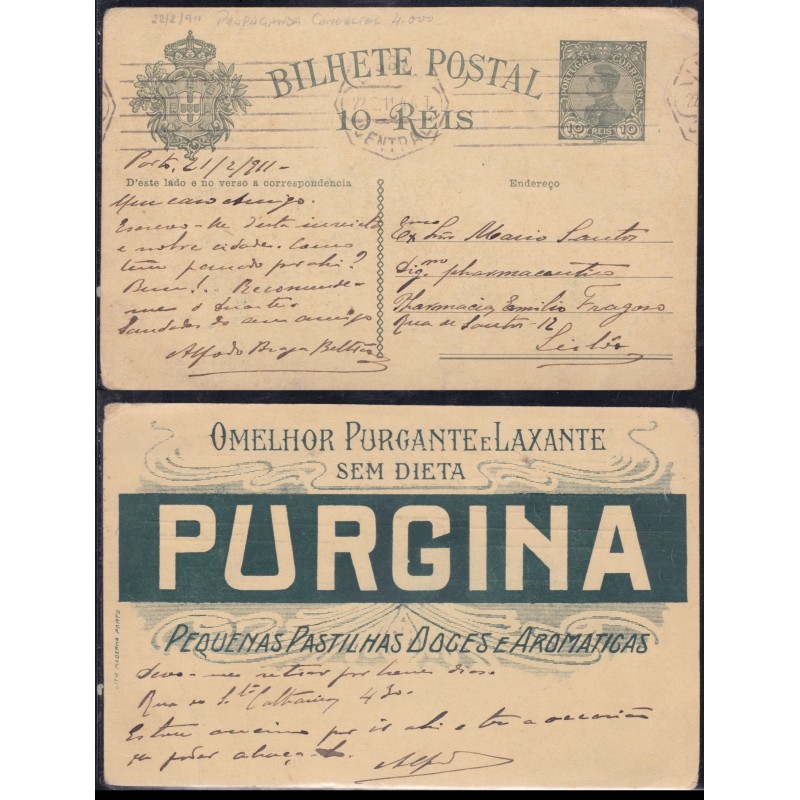 22/2/911 PROPAGANDA COMERCIAL 4.000
BILHETE POSTAL
10-REIS
PORTUGAL CORREIOS
10 REIS 10
CENTRAL
Porto, 21/2/911-
D'este lado e no verso a correspondencia
Endereço
Meu caro Amigo.
Escrevo-lhe d'esta invicta
e nobre cidade. Como
tem passado por ahi?
Bem!.. Recommende-
me o Duarte
Saudades do am amigo
Alfredo Braga
Exmo Snr Mario Santos
Digmo pharmaceutico
Pharmacia Emilio Fragoso
Rua de Santos-12
Lisbôa
OMELHOR PURGANTE E LAXANTE
SEM DIETA
PURGINA
PEQUENAS PASTILHAS DOCES E AROMATICAS
LITH. MODERNA PORTO
Devo-me retirar por breves dias.
Rua de Sta Catharina 430-
Estou ancioso por ir ahi e ter a occasião
de poder abraça-l-o.